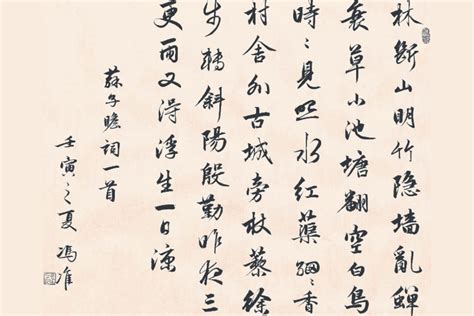 林斷山明竹隐墙亂蟬
衰草小池塘翻空白鳥
時〻見照水红蕖細〻香
村舍外古城旁杖藜徐
步轉斜陽殷勤昨夜三
更雨又得浮生一日涼
蘇子瞻詞一首
壬寅之夏 馮准